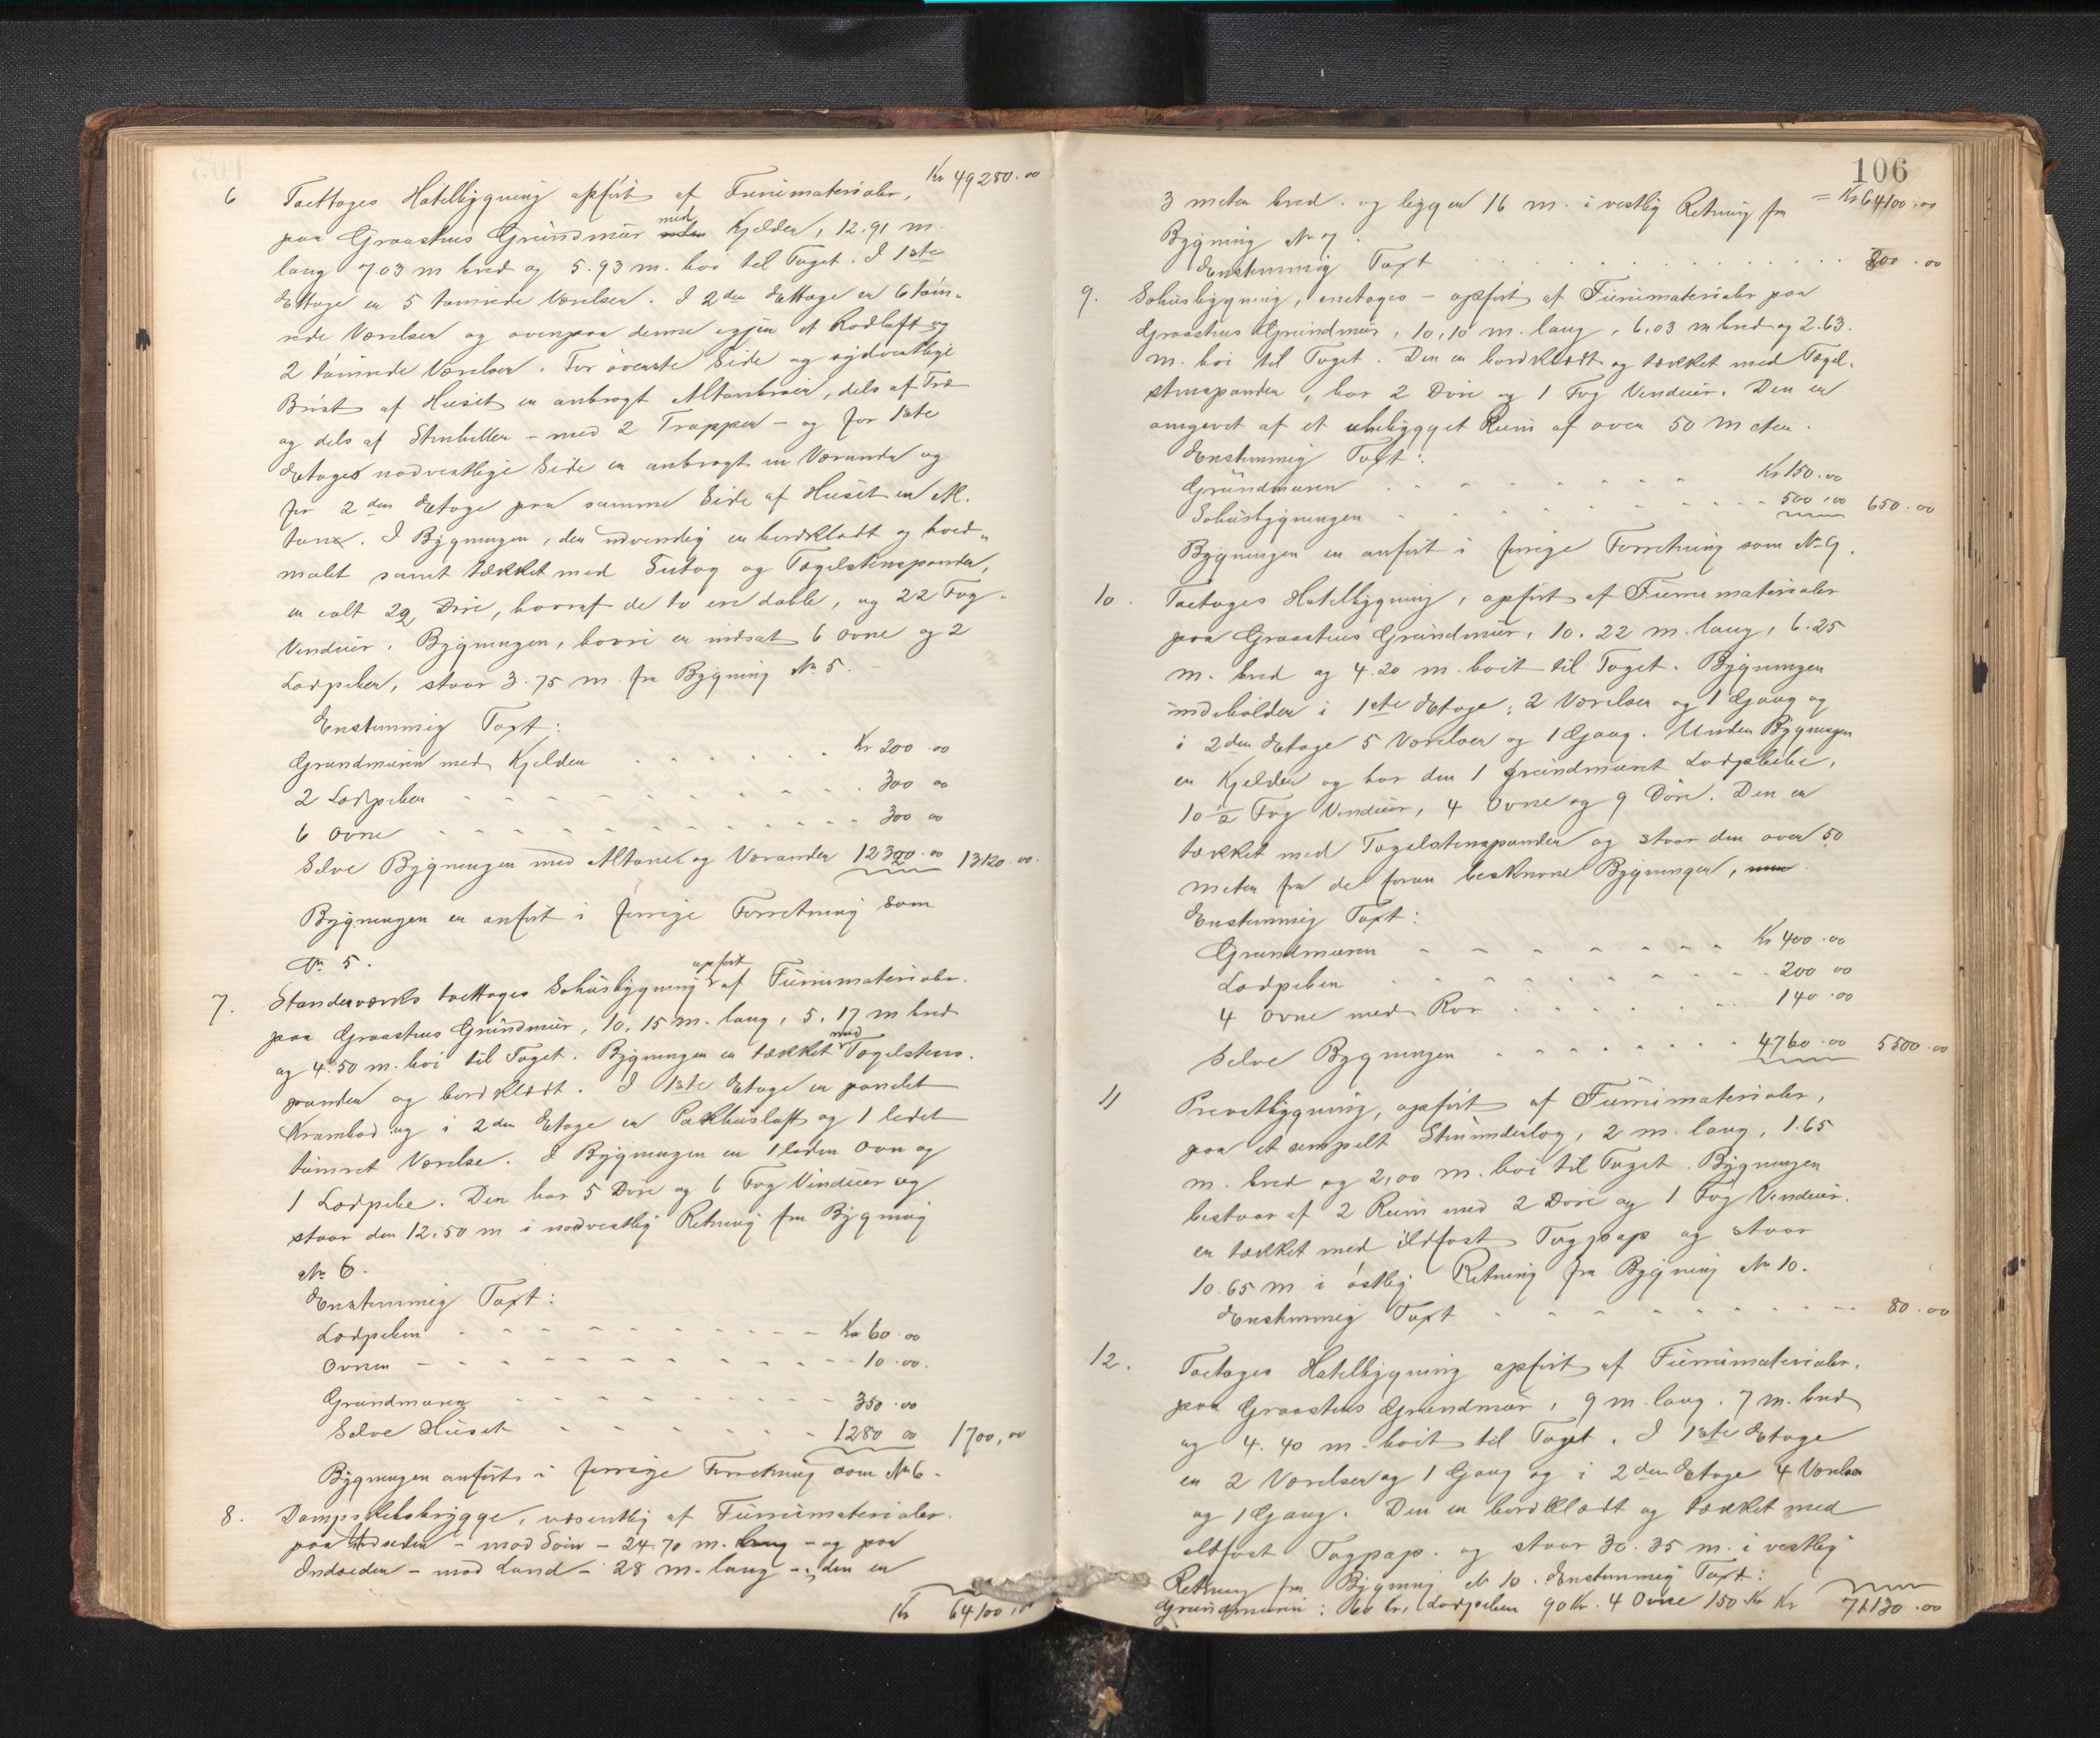 Kr 49280.00
6 Toettages Hotelbygning opført af Furumaterialer,
paa Graastens Grundmur med Kjelder, 12.91 m.
lang 7.03 m bred og 5.93 m. høi til Taget. I 1ste
Ettage er 5 tømrede Værelser. I 2den Ettage er 6 tøm-
rede Værelser og ovenpaa denne igjen et Rodloft og
2 tømrede Værelser. For øverste Side og sydvestlige
Bryst af Huset er anbragt Altanbroer, dels af Træ
og dels af Stenheller - med 2 Trapper - og for 1ste
Etages nordvestlige Side er anbragt en Veranda og
for 2den Etage paa samme Side af Huset en Al-
tan. I Bygningen, der udvendig er bordklædt og hvid-
malet samt tækket med Sutag og Tagelstenspander,
er ialt 22 Døre, hvoraf de to ere doble, og 22 Fag
Vinduer. Bygningen, hvori er indsat 6 Ovne og 2
Lodpiber, staar 3.75 m fra Bygning No 5.
Enstemmig Taxt:
Grundmuren med Kjelder Kr 200.00
2 Lodpiber 300 00
6 Ovne 300 00
Selve Bygningen med Altaner og Veranda 12320.00 13120.00
Bygningen er anført i forrige Forretning som
No 5.
7. Standerværks toettages Søhusbygning opført af Furumaterialer
paa Graastens Grundmur, 10,15 m. lang, 5.17 m bred
og 4.50 m. høi til Taget. Bygningen er tækket med Tagelstens-
pander og bordklædt. I 1ste Etage er panelet
Krambod og i 2den Etage er Pakhusloft og 1 ledet
tømret Værelse. I Bygningen er 1 liden Ovn og
1 Lodpibe. Den har 5 Døre og 6 Fag Vinduer og
staar den 12.50 m i nordvestlig Retning fra Bygning
No 6.
Enstemmig Taxt:
Lodpiben Kr 60.00
Ovnen 10.00.
Grundmuren 350.00
Selve Huset 1280 00 1700,00
Bygningen anført i forrige Forretning som No 6.
8. Dampskibsbrygge, væsentlig af Furumaterialer
paa Udsiden - mod Søen - 24.70 m. lang - og paa
Indsiden - mod Land - 28 m. lang - , den er
Kr 64100,00
106
3 meter bred. og ligger 16 m. i vestlig Retning fra = Kr 64100.00
Bygning No 7.
Enstemmig Taxt 800.00
9. Søhusbygning, enetages - opført af Furumaterialer paa
Graastens Grundmur, 10,10 m. lang, 6,03 m bred og 2.63.
m. høi til Taget. Den er bordklædt og tækket med Tagel-
stenspander, har 2 Døre og 1 Fag Vinduer. Den er
omgivet af et ubebygget Rum af over 50 Meter.
Enstemmig Taxt:
Grundmuren Kr 150.00
Søhusbygningen 500,00 650.00
Bygningen er anført i forrige Forretning som No 9.
10. Toetages Hotelbygning, opført af Furumaterialer
paa Graastens Grundmur, 10.22 m. lang, 6.25
m. bred og 4.20 m. høit til Taget. Bygningen
indeholder i 1ste Etage: 2 Værelser og 1 Gang og
i 2den Etage 5 Værelser og 1 Gang. Under Bygningen
er Kjelder og har den 1 grundmuret Lodpibe,
10 ½ Fag Vinduer, 4 Ovne og 9 Døre. Den er
tækket med Tagelstenspander og staar den over 50
meter fra de foran beskrevne Bygninger,
Enstemmig Taxt:
Grundmuren Kr 400.00
Lodpiben 200 00
4 Ovne med Rør 140.00
Selve Bygningen 4760.00 5500.00
11 Privetbygning, opført af Furumaterialer,
paa et simpelt Stenunderlag, 2 m. lang, 1.65
m. bred og 2,00 m. høi til Taget. Bygningen
bestaar af 2 Rum med 2 Døre og 1 Fag Vinduer.
er tækket med ildfast Tagpap og staar
10.65 m. i østlig Retning fra Bygning No 10.
Enstemmig Taxt 80.00
12. Toetages Hotelbygning opført af Furumaterialer
paa Graastens Grundmur, 9 m. lang. 7 m. bred
og 4.40 m. høit til Taget. I 1ste Etage
er 2 Værelser og 1 Gang og i 2den Etage 4 Værelser
og 1 Gang. Den er bordklædt og tækket med
ildfast Tagpap. og staar 30.35 m. i vestlig
Retning fra Bygning No 10. Enstemmig Taxt:
Grundmuren: 60 Kr, Lodpiben 90 Kr. 4 Ovne 150 Kr Kr 71130.00